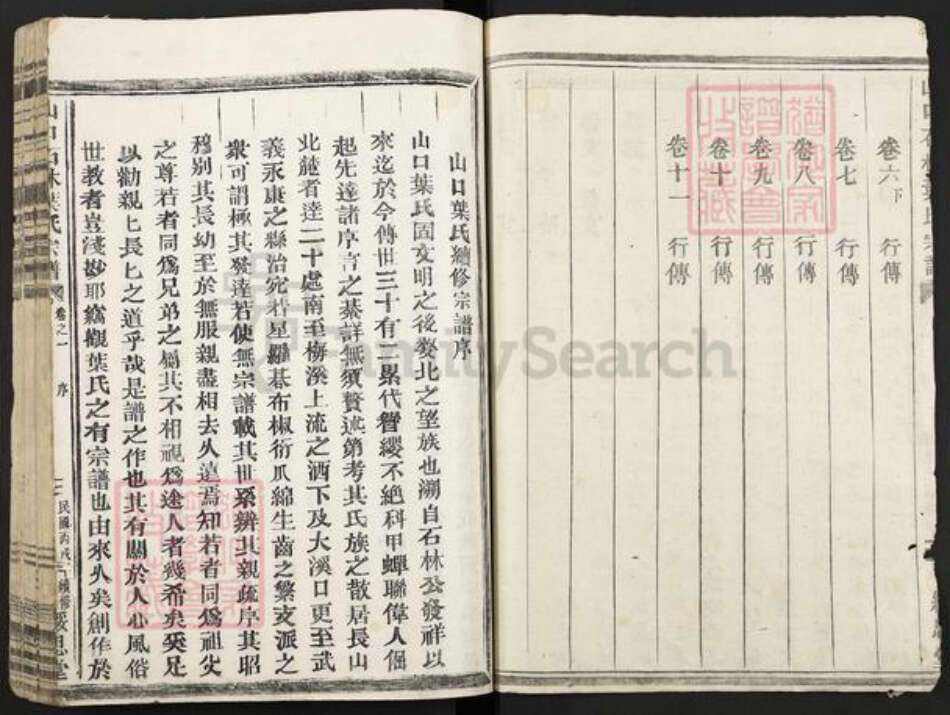 卷六下 行傳
卷七 行傳
卷八 行傳
卷九 行傳
卷十 行傳
卷十一 行傳
山口葉氏續修宗譜序
山口葉氏固文明之後婺北之望族也溯自石林公發祥以
來迄於今傳世三十有二累代簪纓不絶科甲蟬聯偉人倔
起先達諸序言之綦詳無須贅述第考其氏族之散居長山
北麓者達二十處南至梅溪上流之洒下及大溪口更至武
義永康之縣治宛若星羅碁布椒衍爪綿生齒之繁支派之
衆可謂極其發達若使無宗譜載其世系辨其親疏序其昭
穆别其長幼至於無服親盡相去久遠焉知若者同爲祖父
之尊若者同爲兄弟之屬其不相視爲途人者幾希矣奚足
以勸親匕長匕之道乎哉是譜之作也其有關於人心風俗
世教者豈淺尠耶竊觀葉氏之有宗譜也由來久矣創作於
山口石林葉氏宗譜 卷之一 序 民國丙戌 續修
FamilySearch